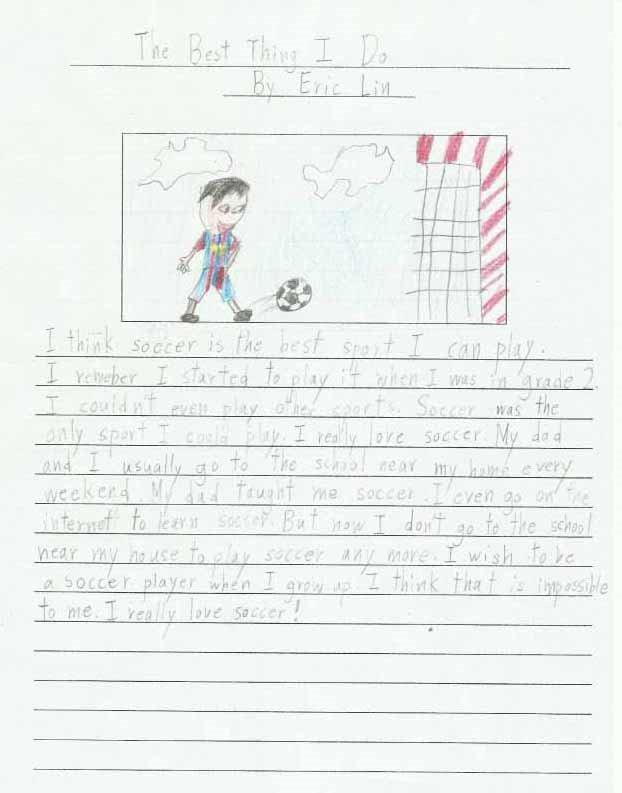 The Best Thing I Do
By Eric Lin
I think soccer is the best sport I can play.
I remeber I started to play it when I was in grade 2.
I couldn't even play other sports. Soccer was the
only sport I could play. I really love soccer. My dad
and I usually go to the school near my home every
weekend. My dad taught me soccer. I even go on the
internet to learn soccer. But now I don't go to the school
near my house to play soccer any more. I wish to be
a soccer player when I grow up. I think that is impossible
to me. I really love soccer!